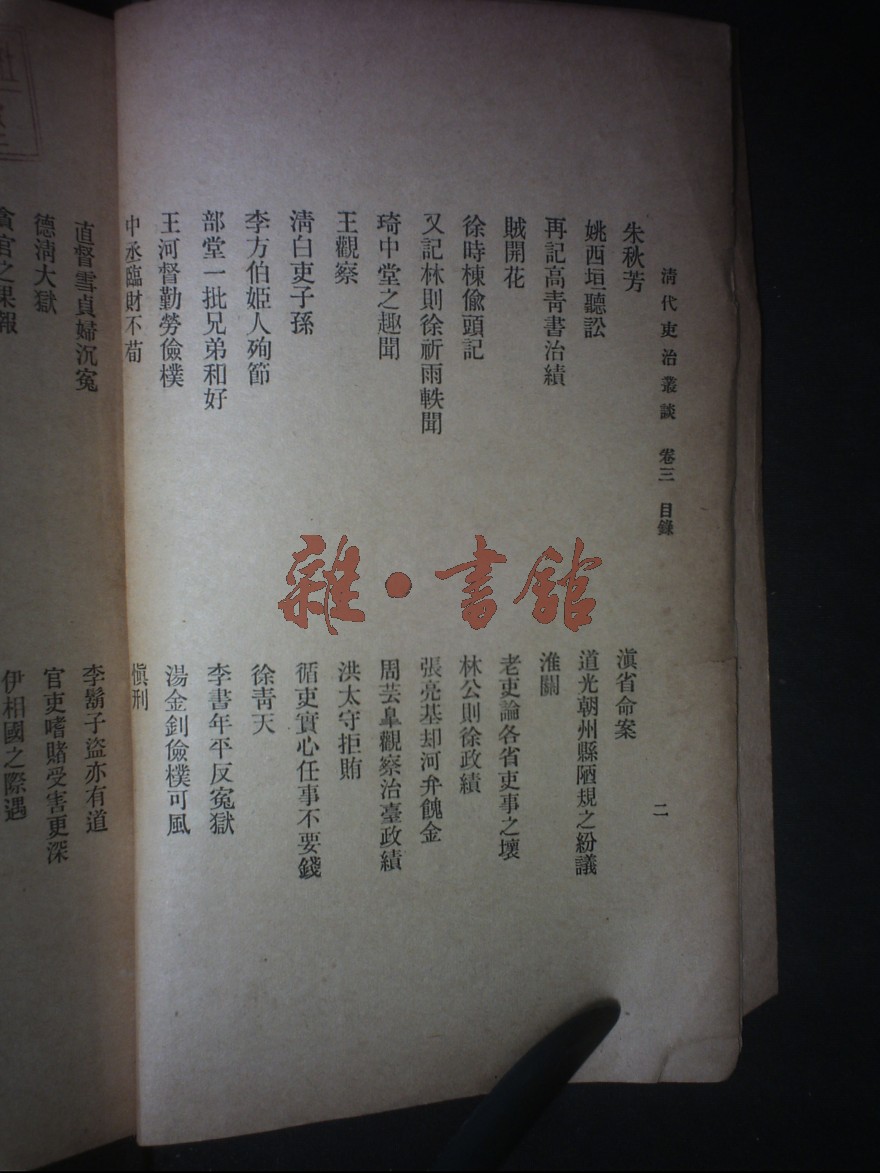 清代吏治叢談 卷三 目錄 二
朱秋芳
滇省命案
姚西垣聽訟
道光朝州縣陋規之紛議
再記高青書治績
淮關
賊開花
老吏論各省吏事之壞
徐時棟偸頭記
林公則徐政績
又記林則徐祈雨軼聞
張亮基却河弁餽金
琦中堂之趣聞
周芸臯觀察治臺政績
王觀察
洪太守拒賄
淸白吏子孫
循吏實心任事不要錢
李方伯姬人殉節
徐靑天
部堂一批兄弟和好
李書年平反寃獄
王河督勤勞儉樸
湯金釗儉樸可風
中丞臨財不苟
愼刑
直督雪貞婦沉寃
李鬍子盜亦有道
德淸大獄
官吏嗜賭受害更深
貪官之果報
伊相國之際遇
雜·書館